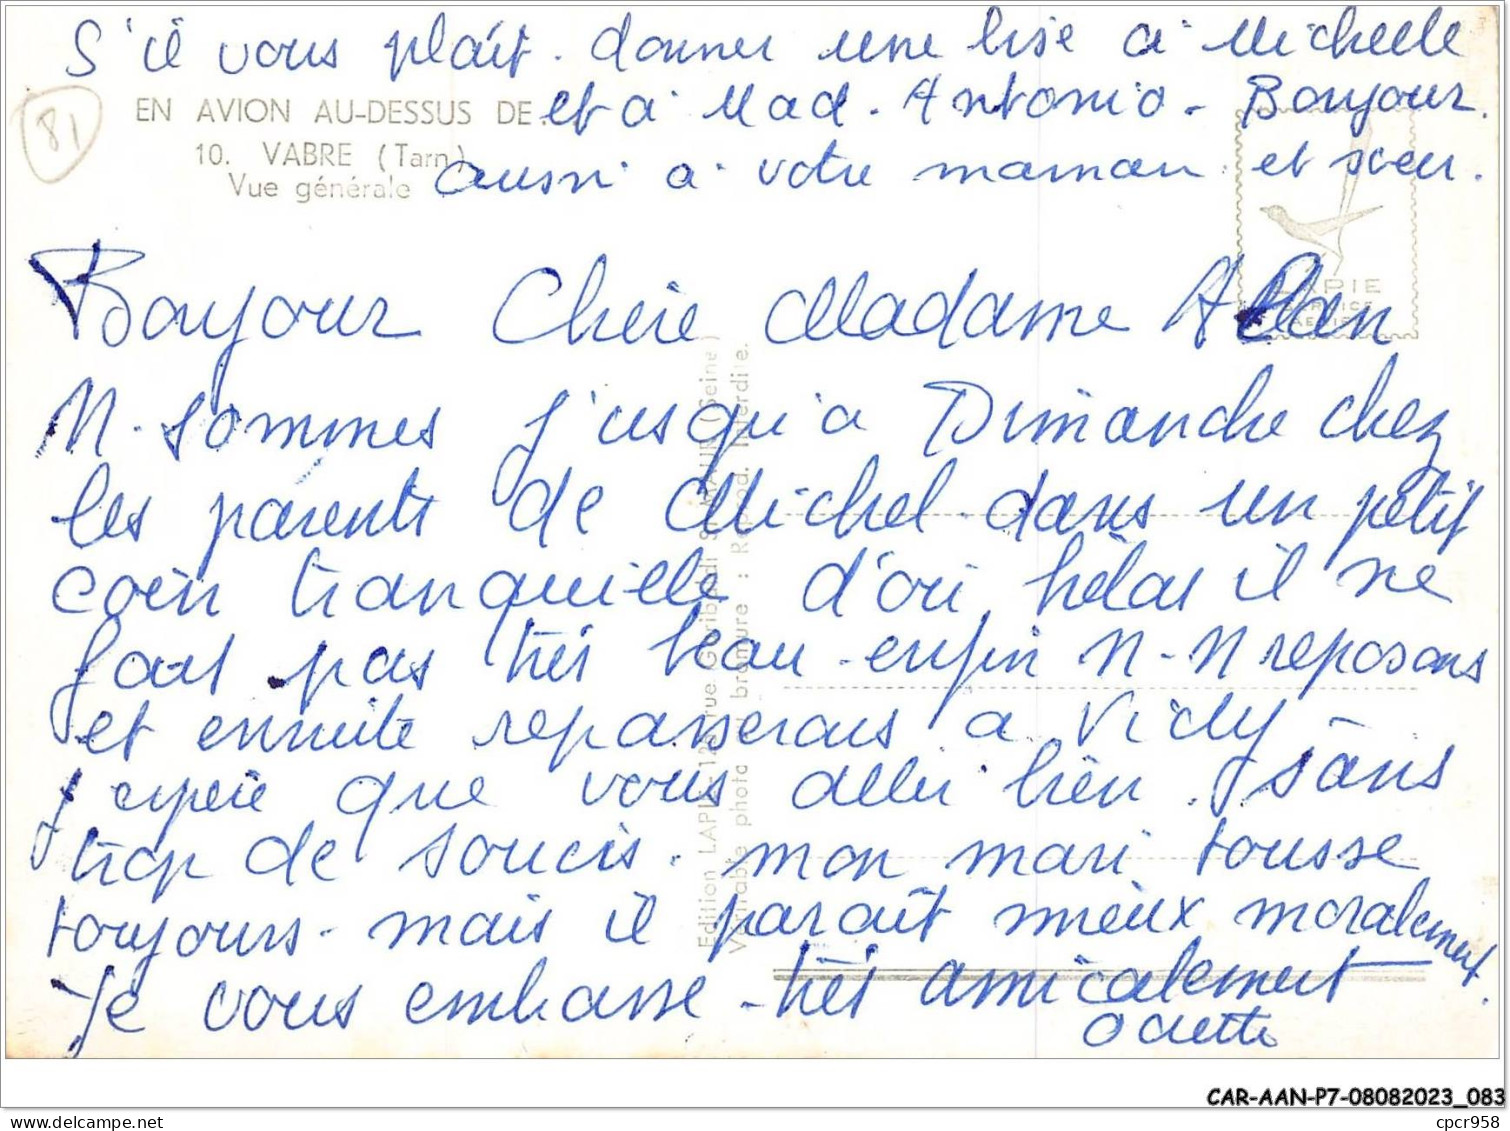 S'il vous plaît. donner une bise à Michelle
et à Mad. Antonio. Bonjour.
aussi à votre maman et soeur.
81
EN AVION AU-DESSUS DE...
10. VABRE (Tarn)
Vue générale
LAPIE
SERVICE
AERIEN
Bonjour Chère Madame Allan
N. sommes j'usqu'a Dimanche chez
les parents de Michel dans un petit
coin tranquille d'où hélas il ne
fait pas très beau. enfin N-N reposons
et ensuite repasserais a Vichy
j'espère que vous allez bien. sans
trop de soucis. mon mari tousse
toujours. mais il parait mieux moralement.
Je vous embrasse - très amicalement
Odette
Edition LAPIE - rue Garibaldi S. MAUR (Seine)
Véritable photo au bromure : Reprod. Interdite.
CAR-AAN-P7-08082023_083
cpcr958